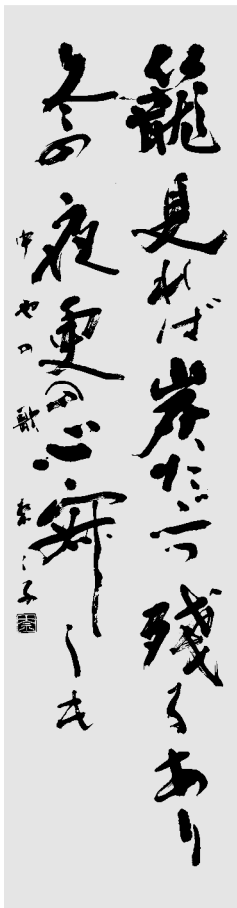 籠見れば炭たゞ一つ残るあり
冬の夜更の心寂しも
中也の歌